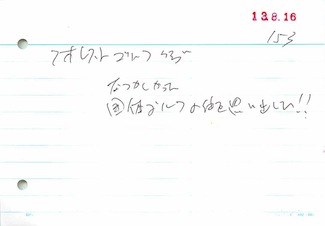 13.8.16
153
フォレストゴルフクラブ
なつかしかった
団体ゴルフの頃を思い出した!!